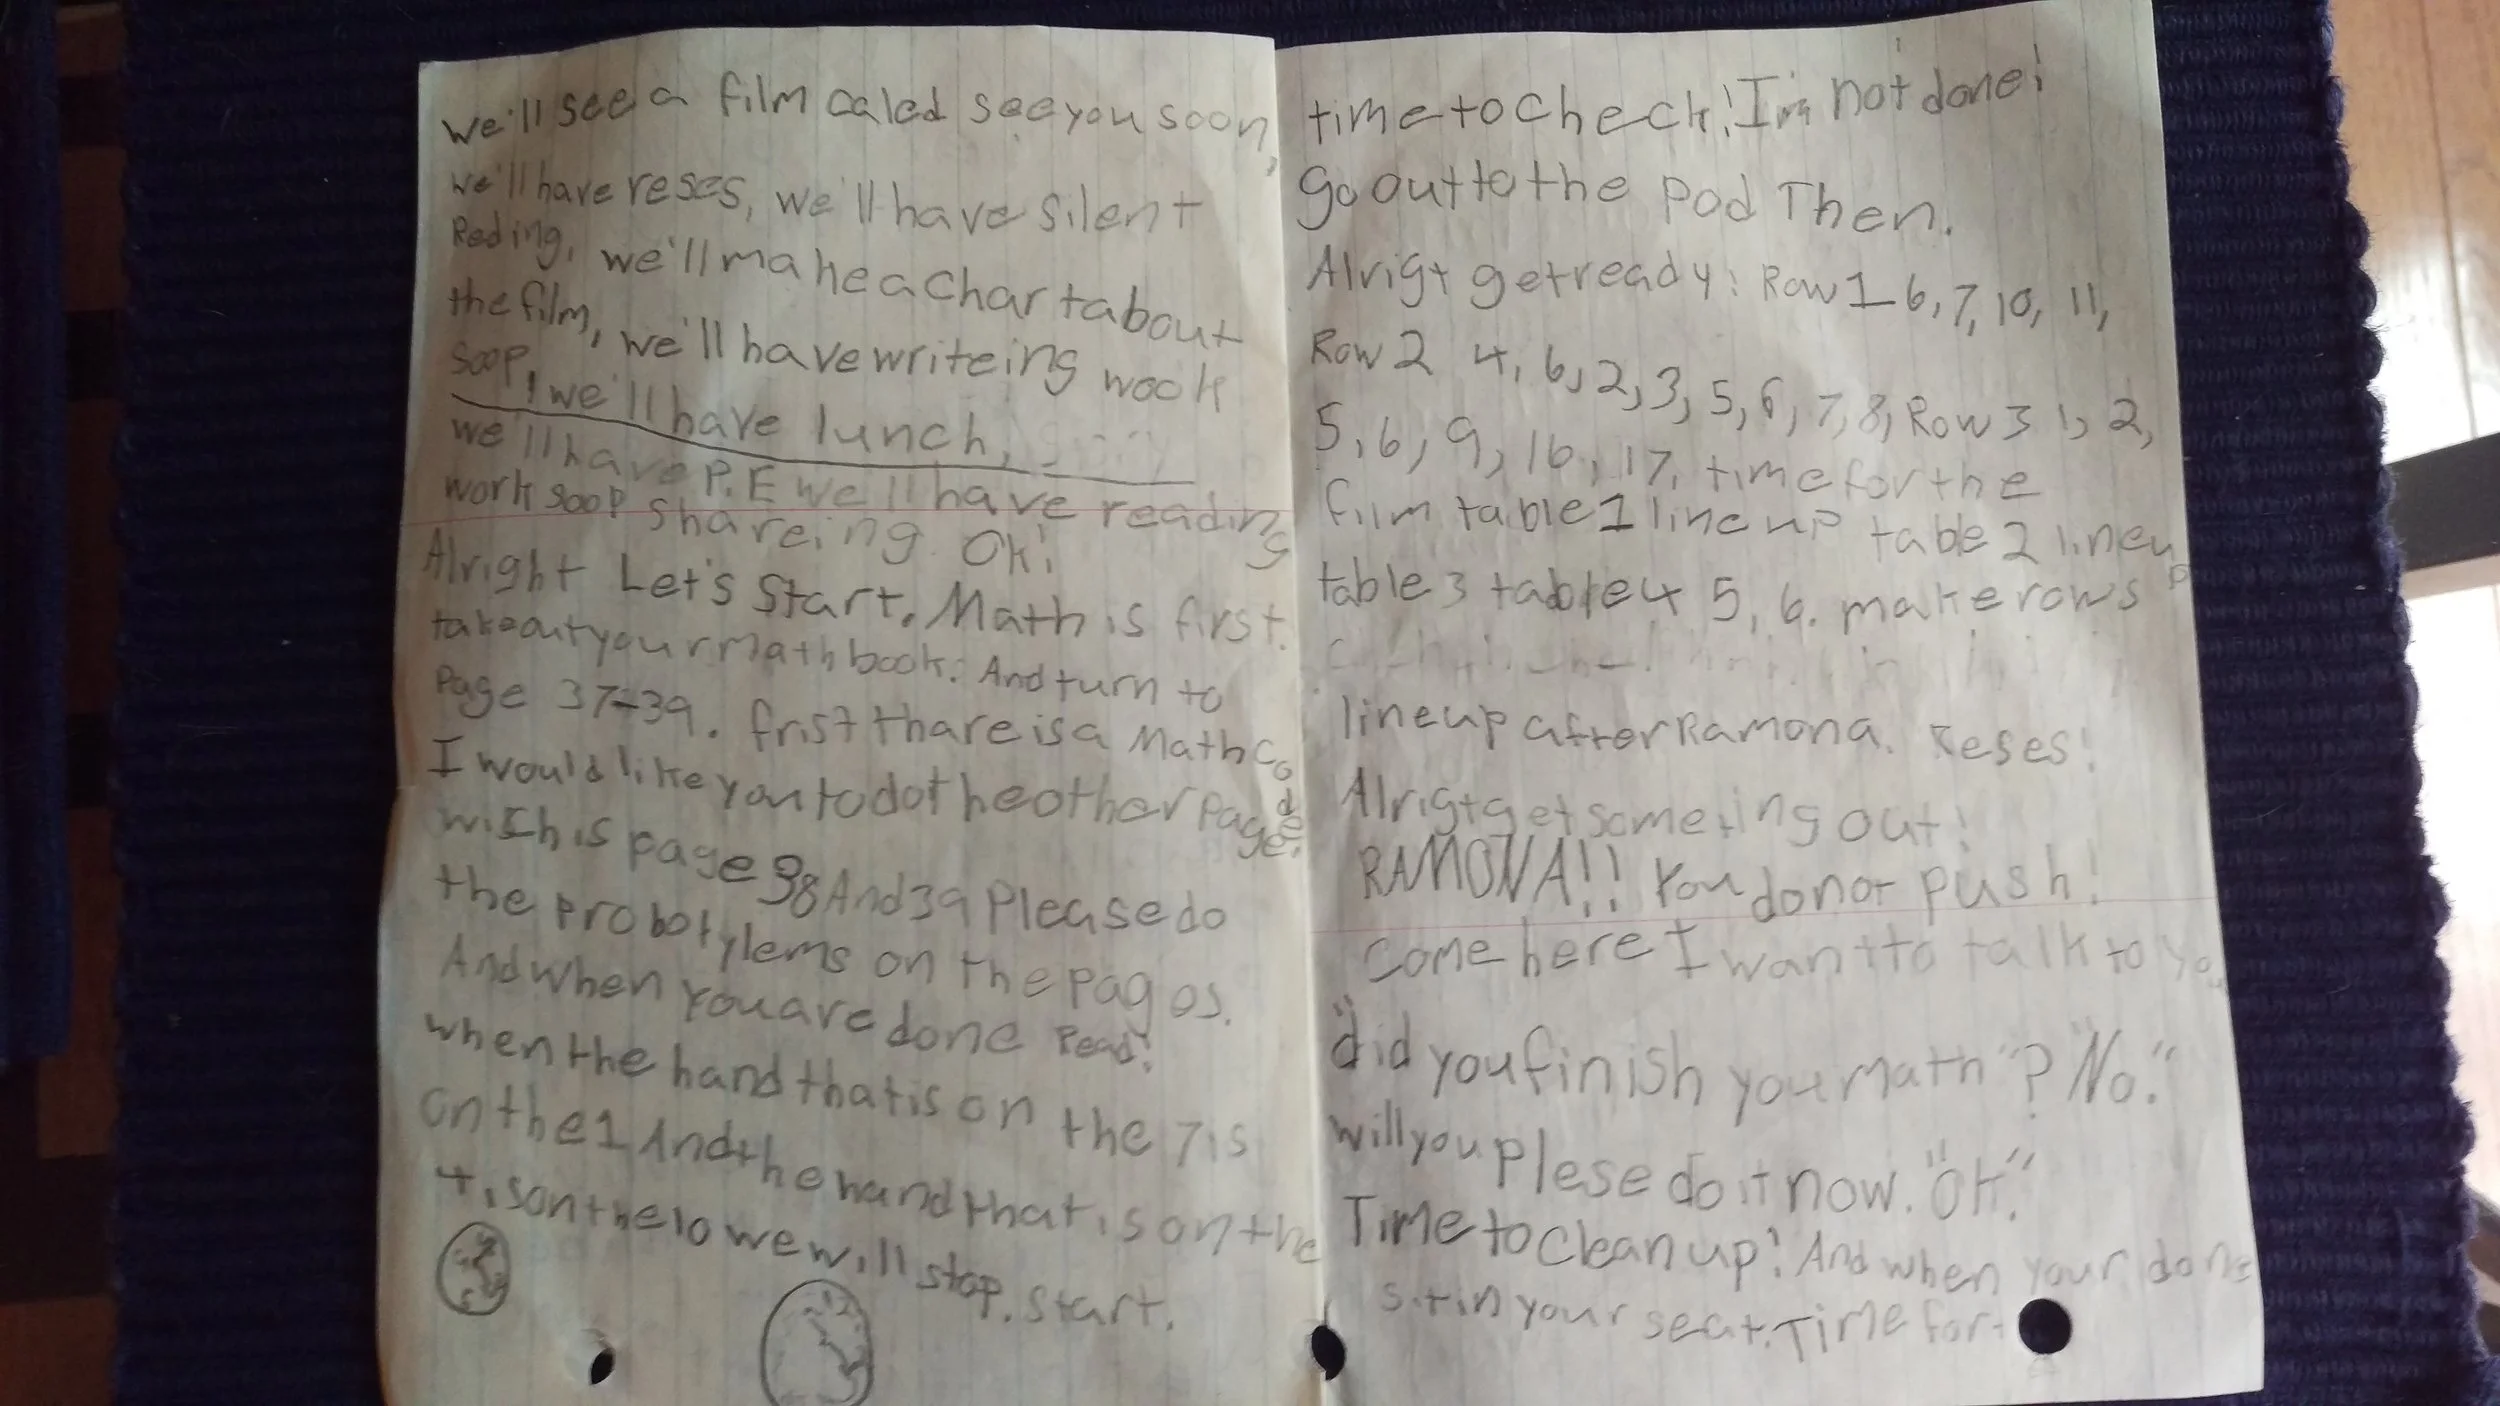 we'll see a film caled see you soon,
we'll have reses, we'll have silent
Reding, we'll make a chart about
the film, we'll have writeing wook
soop, we'll have lunch,
we'll have P.E we'll have reading
work soop shareing. Ok!
Alright Let's Start. Math is first.
take out your Math book. And turn to
Page 37-39. frist thare is a Math code
I would like you to do the other Page.
wich is page 38 And 39 Please do
the problems on the pages.
And when you are done Read!
when the hand that is on the 7 is
on the 1 And the hand that is on the
4 is on the 10 we will stop. Start.
time to check! I'm not done!
go out to the pod Then.
Alrigt get ready: Row 1 6, 7, 10, 11,
Row 2 4, 6, 2, 3, 5, 6, 7, 8, Row 3 1, 2,
5, 6, 9, 16, 17, time for the
film table 1 line up table 2 line up
table 3 table 4 5, 6. make rows
line up after Ramona. Reses!
Alrigt get someting out!
RAMONA!! You do not push!
Come here I want to talk to you
"did you finish your math"? "No."
will you Plese do it now. "Ok."
Time to clean up! And when your done
sit in your seat. Time for